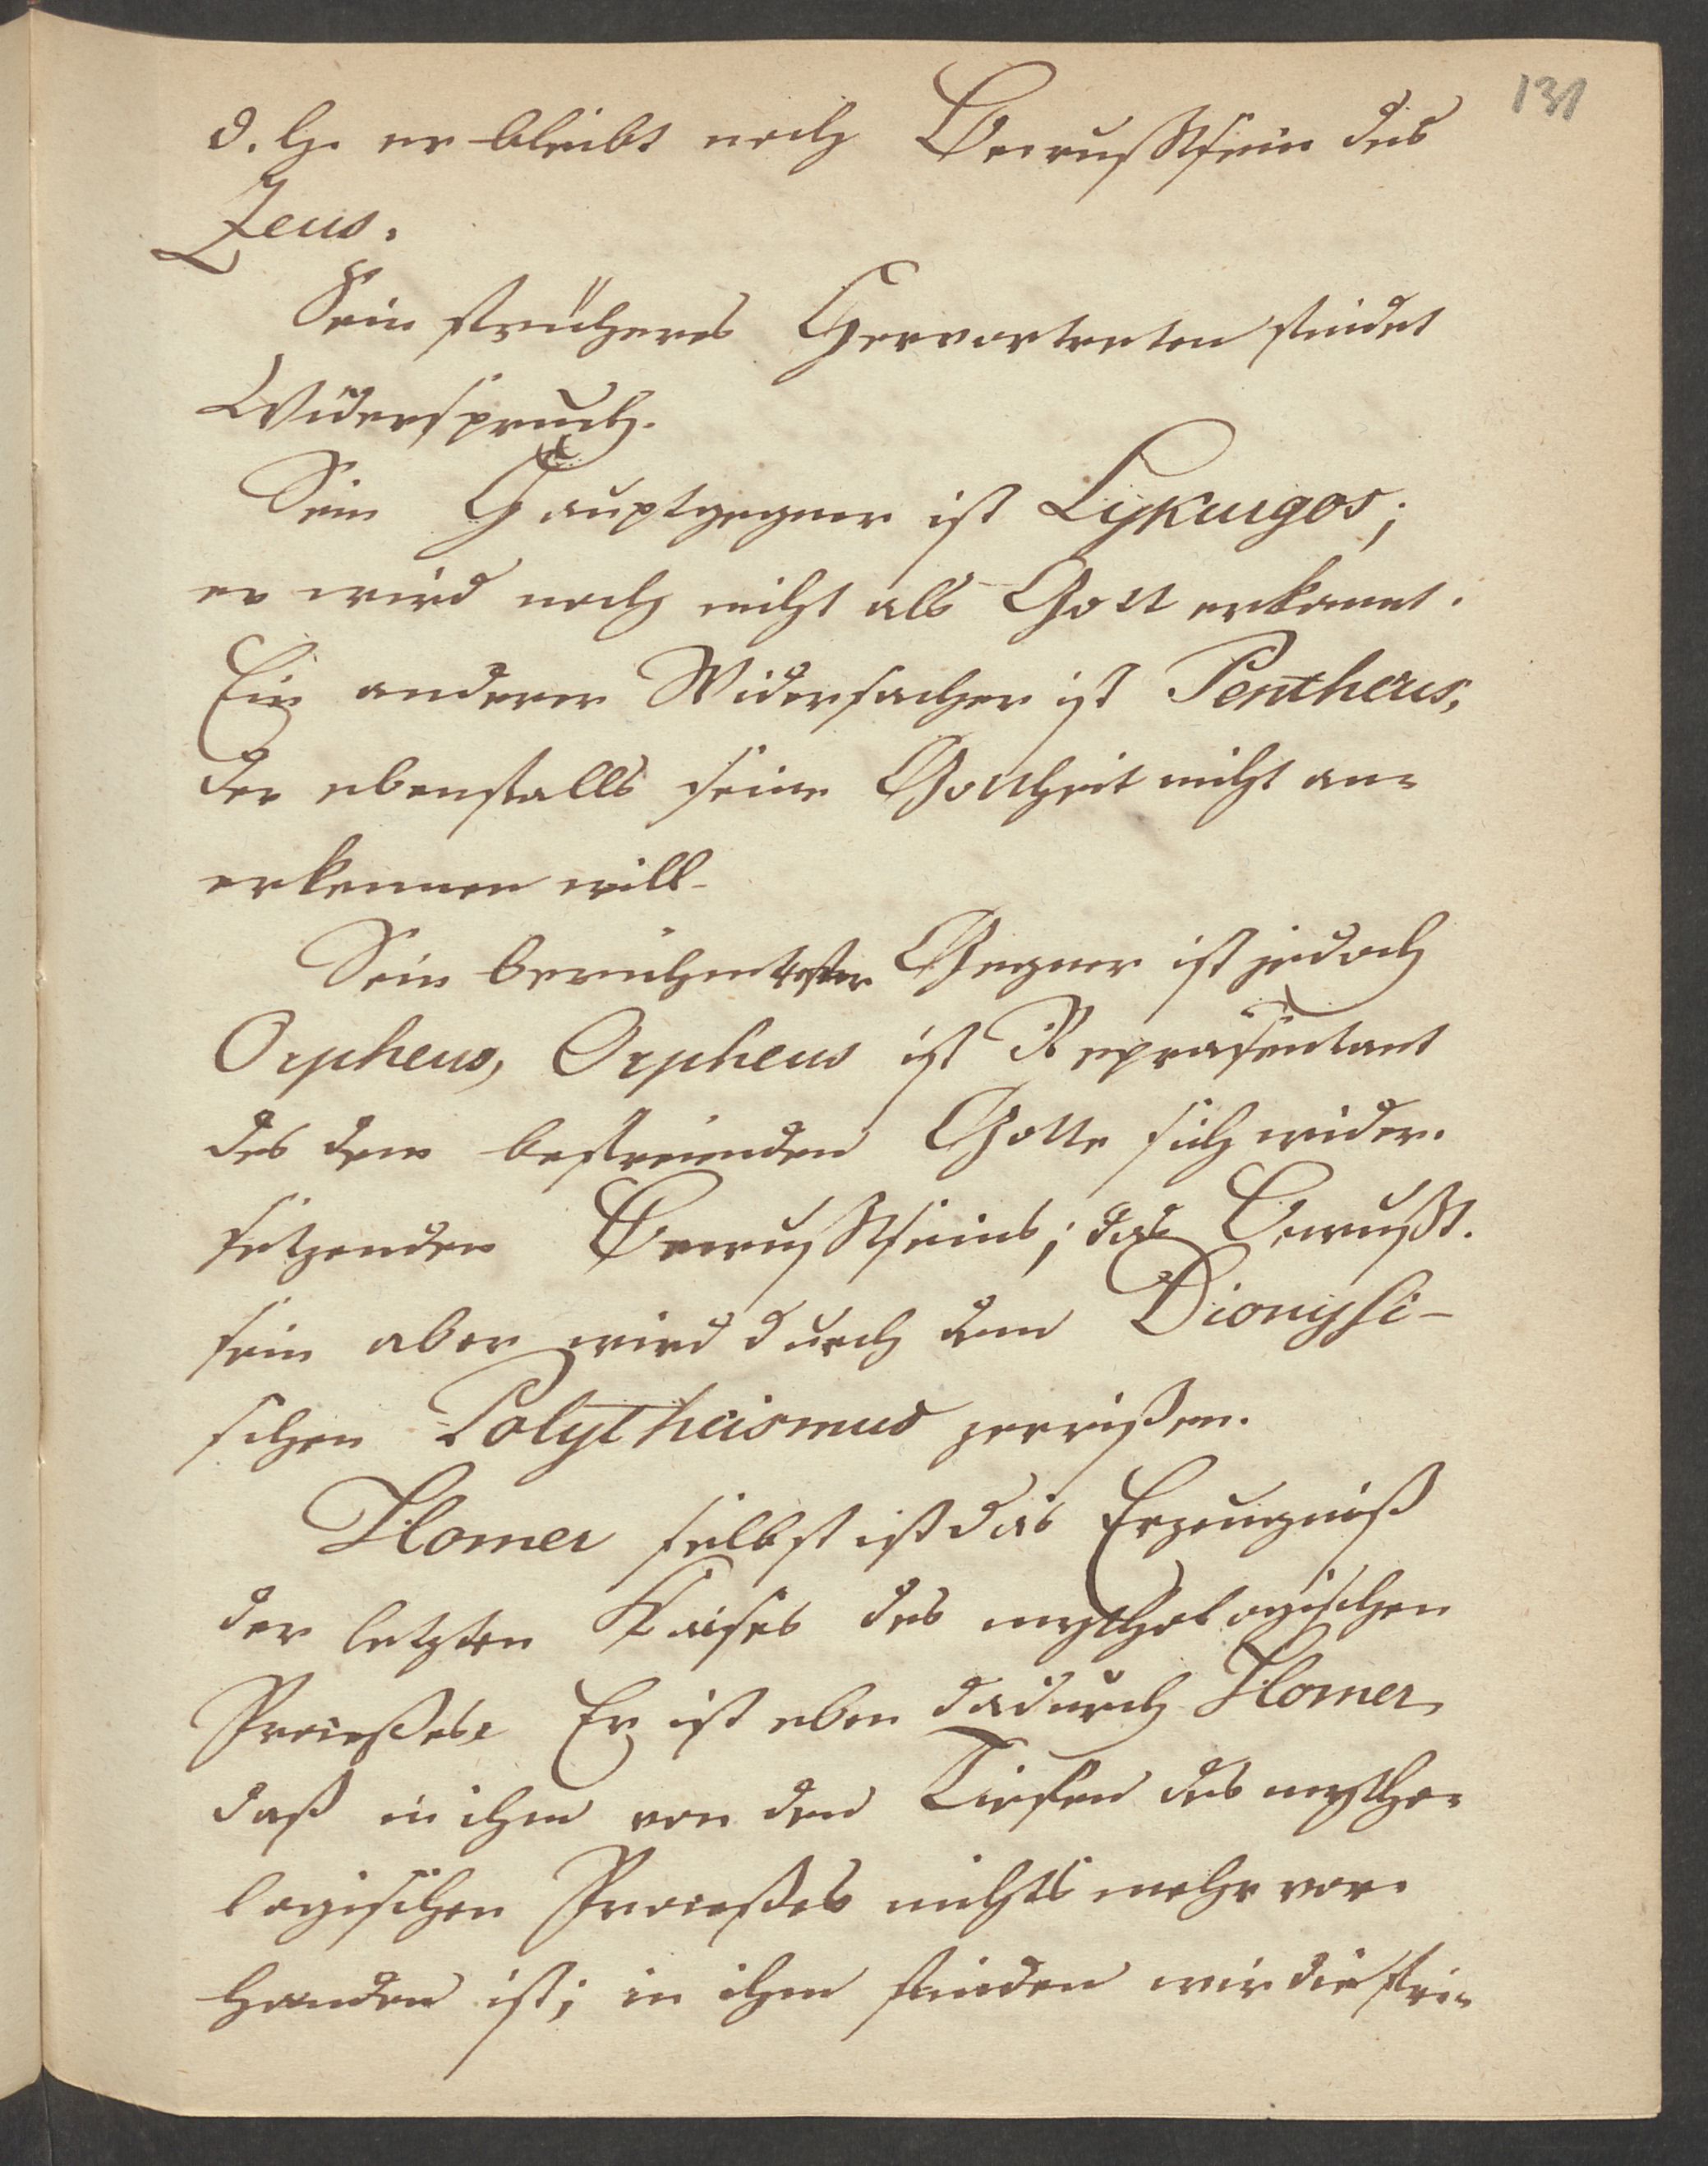 131
d. h. er bleibt noch Bewußtsein des
Zeus.
Sein früheres Hervortreten findet
Widerspruch.
Sein Hauptgegner ist Lykurgos;
er wird noch nicht als Gott erkannt.
Ein anderer Widersacher ist Pentheus,
der ebenfalls seine Gottheit nicht an-
erkennen will.
Sein berühmtester Gegner ist jedoch
Orpheus, Orpheus ist Repräsentant
des dem befreienden Gotte sich wider-
setzenden Bewußtseins; das Bewußt-
sein aber wird durch den Dionysi-
schen Polytheismus zerrißen.
Homer selbst ist das Erzeugniß
der letzten Krisis des mythologischen
Proceßes. Er ist eben dadurch Homer,
daß in ihm von den Tiefen des mytho-
logischen Proceßes nichts mehr vor-
handen ist; in ihm finden wir die frei-